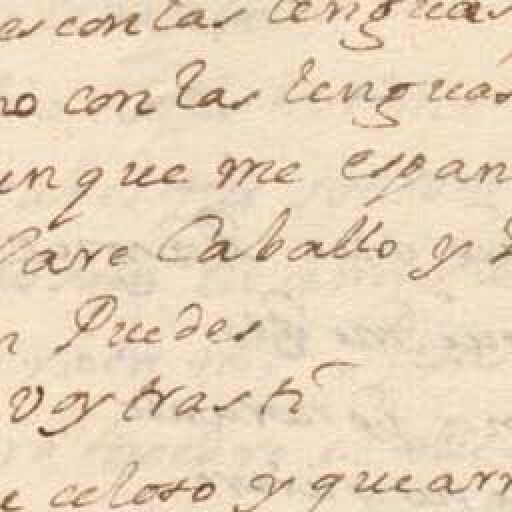 es con las lenguas
no con las lenguas
unque me espan
Caballo y
Puedes
voy tras ti
e celoso y que arr